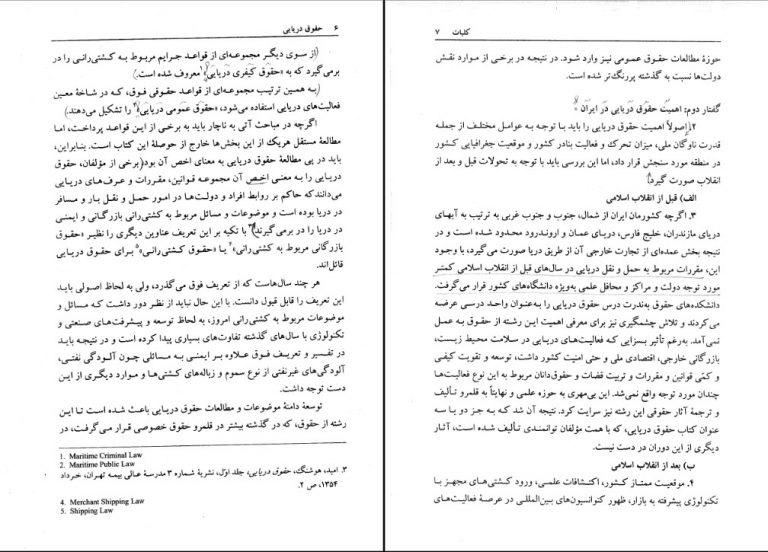 ۶ حقوق دریایی
(از سوی دیگر مجموعه‌ای از قواعد جرایم مربوط به کشتی‌رانی را در
برمی‌گیرد که به «حقوق کیفری دریایی»۱ معروف شده است.)
(به همین ترتیب مجموعه‌ای از قواعد حقوقی فوق، که در شاخهٔ معین
فعالیت‌های دریایی استفاده می‌شود، «حقوق عمومی دریایی»۲ را تشکیل می‌دهند.)
اگرچه در مباحث آتی به ناچار باید به برخی از این قواعد پرداخت، اما
مطالعهٔ مستقل هریک از این بخش‌ها خارج از حوصلهٔ این کتاب است. بنابراین،
باید در پی مطالعهٔ حقوق دریایی به معنای اخص آن بود. (برخی از مؤلفان، حقوق
دریایی را به معنی اخص آن مجموعه قوانین، مقررات و عرف‌های دریایی
می‌دانند که حاکم بر روابط افراد و دولت‌ها در امور حمل و نقل بار و مسافر
در دریا بوده است و موضوعات و مسائل مربوط به کشتی‌رانی بازرگانی و ایمنی
در دریا را در برمی‌گیرند)۳ با تکیه بر این تعریف عناوین دیگری را نظیر «حقوق
بازرگانی مربوط به کشتی‌رانی»۴ یا «حقوق کشتی‌رانی»۵ برای حقوق دریایی
قائل‌اند.
هر چند سال‌هاست که از تعریف فوق می‌گذرد، ولی به لحاظ اصولی باید
این تعریف را قابل قبول دانست. با این حال نباید از نظر دور داشت که مسائل و
موضوعات مربوط به کشتی‌رانی امروز، به لحاظ توسعه و پیشرفت‌های صنعتی و
تکنولوژی با سال‌های گذشته تفاوت‌های بسیاری پیدا کرده است و در نتیجه باید
در تفسیر و تعریف فوق علاوه بر ایمنی به مسائلی چون آلودگی نفتی،
آلودگی‌های غیرنفتی از نوع سموم و زباله‌های کشتی‌ها و موارد دیگری از این
دست توجه داشت.
توسعهٔ دامنهٔ موضوعات و مطالعات حقوق دریایی باعث شده است تا این
رشته از حقوق، که در گذشته بیشتر در قلمرو حقوق خصوصی قرار می‌گرفت، در
1. Maritime Criminal Law
2. Maritime Public Law
۳. امید، هوشنگ، حقوق دریایی، جلد اول، نشریهٔ شماره ۳ مدرسهٔ عالی بیمه تهران، خرداد
۱۳۵۴، ص ۲.
4. Merchant Shipping Law
5. Shipping Law
کلیات ۷
حوزهٔ مطالعات حقوق عمومی نیز وارد شود. در نتیجه در برخی از موارد نقش
دولت‌ها نسبت به گذشته پررنگ‌تر شده است.
گفتار دوم: اهمیت حقوق دریایی در ایران
۲. اصولاً اهمیت حقوق دریایی را باید با توجه به عوامل مختلف از جمله
قدرت ناوگان ملی، میزان تحرک و فعالیت بنادر کشور و موقعیت جغرافیایی کشور
در منطقه مورد سنجش قرار داد، اما این بررسی باید با توجه به تحولات قبل و بعد از
انقلاب صورت گیرد.
الف) قبل از انقلاب اسلامی
۳. اگرچه کشورمان ایران از شمال، جنوب و جنوب غربی به ترتیب به آبهای
دریای مازندران، خلیج فارس، دریای عمان و اروندرود محدود شده است و در
نتیجه بخش عمده‌ای از تجارت خارجی آن از طریق دریا صورت می‌گیرد، با وجود
این، مقررات مربوط به حمل و نقل دریایی در سال‌های قبل از انقلاب اسلامی کمتر
مورد توجه دولت و مراکز و محافل علمی به‌ویژه دانشگاه‌های کشور قرار می‌گرفت.
دانشکده‌های حقوق به‌ندرت درس حقوق دریایی را به‌عنوان واحد درسی عرضه
می‌کردند و تلاش چشمگیری نیز برای معرفی اهمیت این رشته از حقوق به عمل
نمی‌آمد. به‌رغم تأثیر بسزایی که فعالیت‌های دریایی در سلامت محیط زیست،
بازرگانی خارجی، اقتصادی ملی و حتی امنیت کشور داشت، توسعه و تقویت کیفی
و کمّی قوانین و مقررات و تربیت قضات و حقوق‌دانان مربوط به این نوع فعالیت‌ها
چندان مورد توجه واقع نمی‌شد. این بی‌مهری به حوزه علمی و نهایتاً به قلمرو تألیف
و ترجمهٔ آثار حقوقی این رشته نیز سرایت کرد. نتیجه آن شد که به جز دو یا سه
عنوان کتاب حقوق دریایی، که با همت مؤلفان توانمندی تألیف شده است، آثار
دیگری از این دوران در دست نیست.
ب) بعد از انقلاب اسلامی
۴. موقعیت ممتاز کشور، اکتشافات علمی، ورود کشتی‌های مجهز با
تکنولوژی پیشرفته به بازار، ظهور کنوانسیون‌های بین‌المللی در عرصهٔ فعالیت‌های